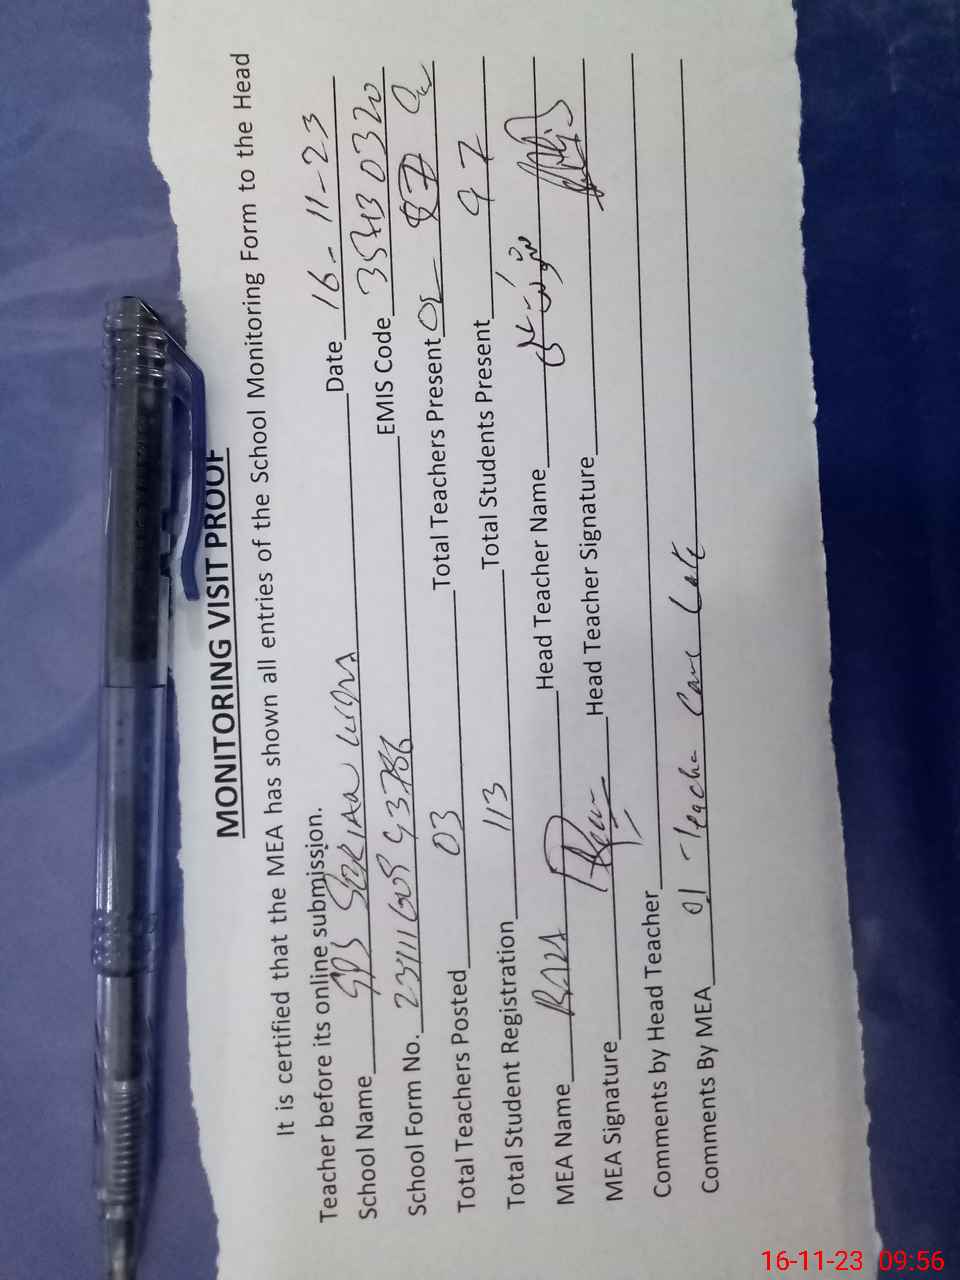 MONITORING VISIT PROOF
It is certified that the MEA has shown all entries of the School Monitoring Form to the Head
Teacher before its online submission.
School Name GPS Date 16-11-23
School Form No. EMIS Code
Total Teachers Posted 03 Total Teachers Present
Total Student Registration 113 Total Students Present 97
MEA Name RAZA Head Teacher Name
MEA Signature Head Teacher Signature
Comments by Head Teacher
Comments By MEA 01 Teacher Came Late
16-11-23 09:56